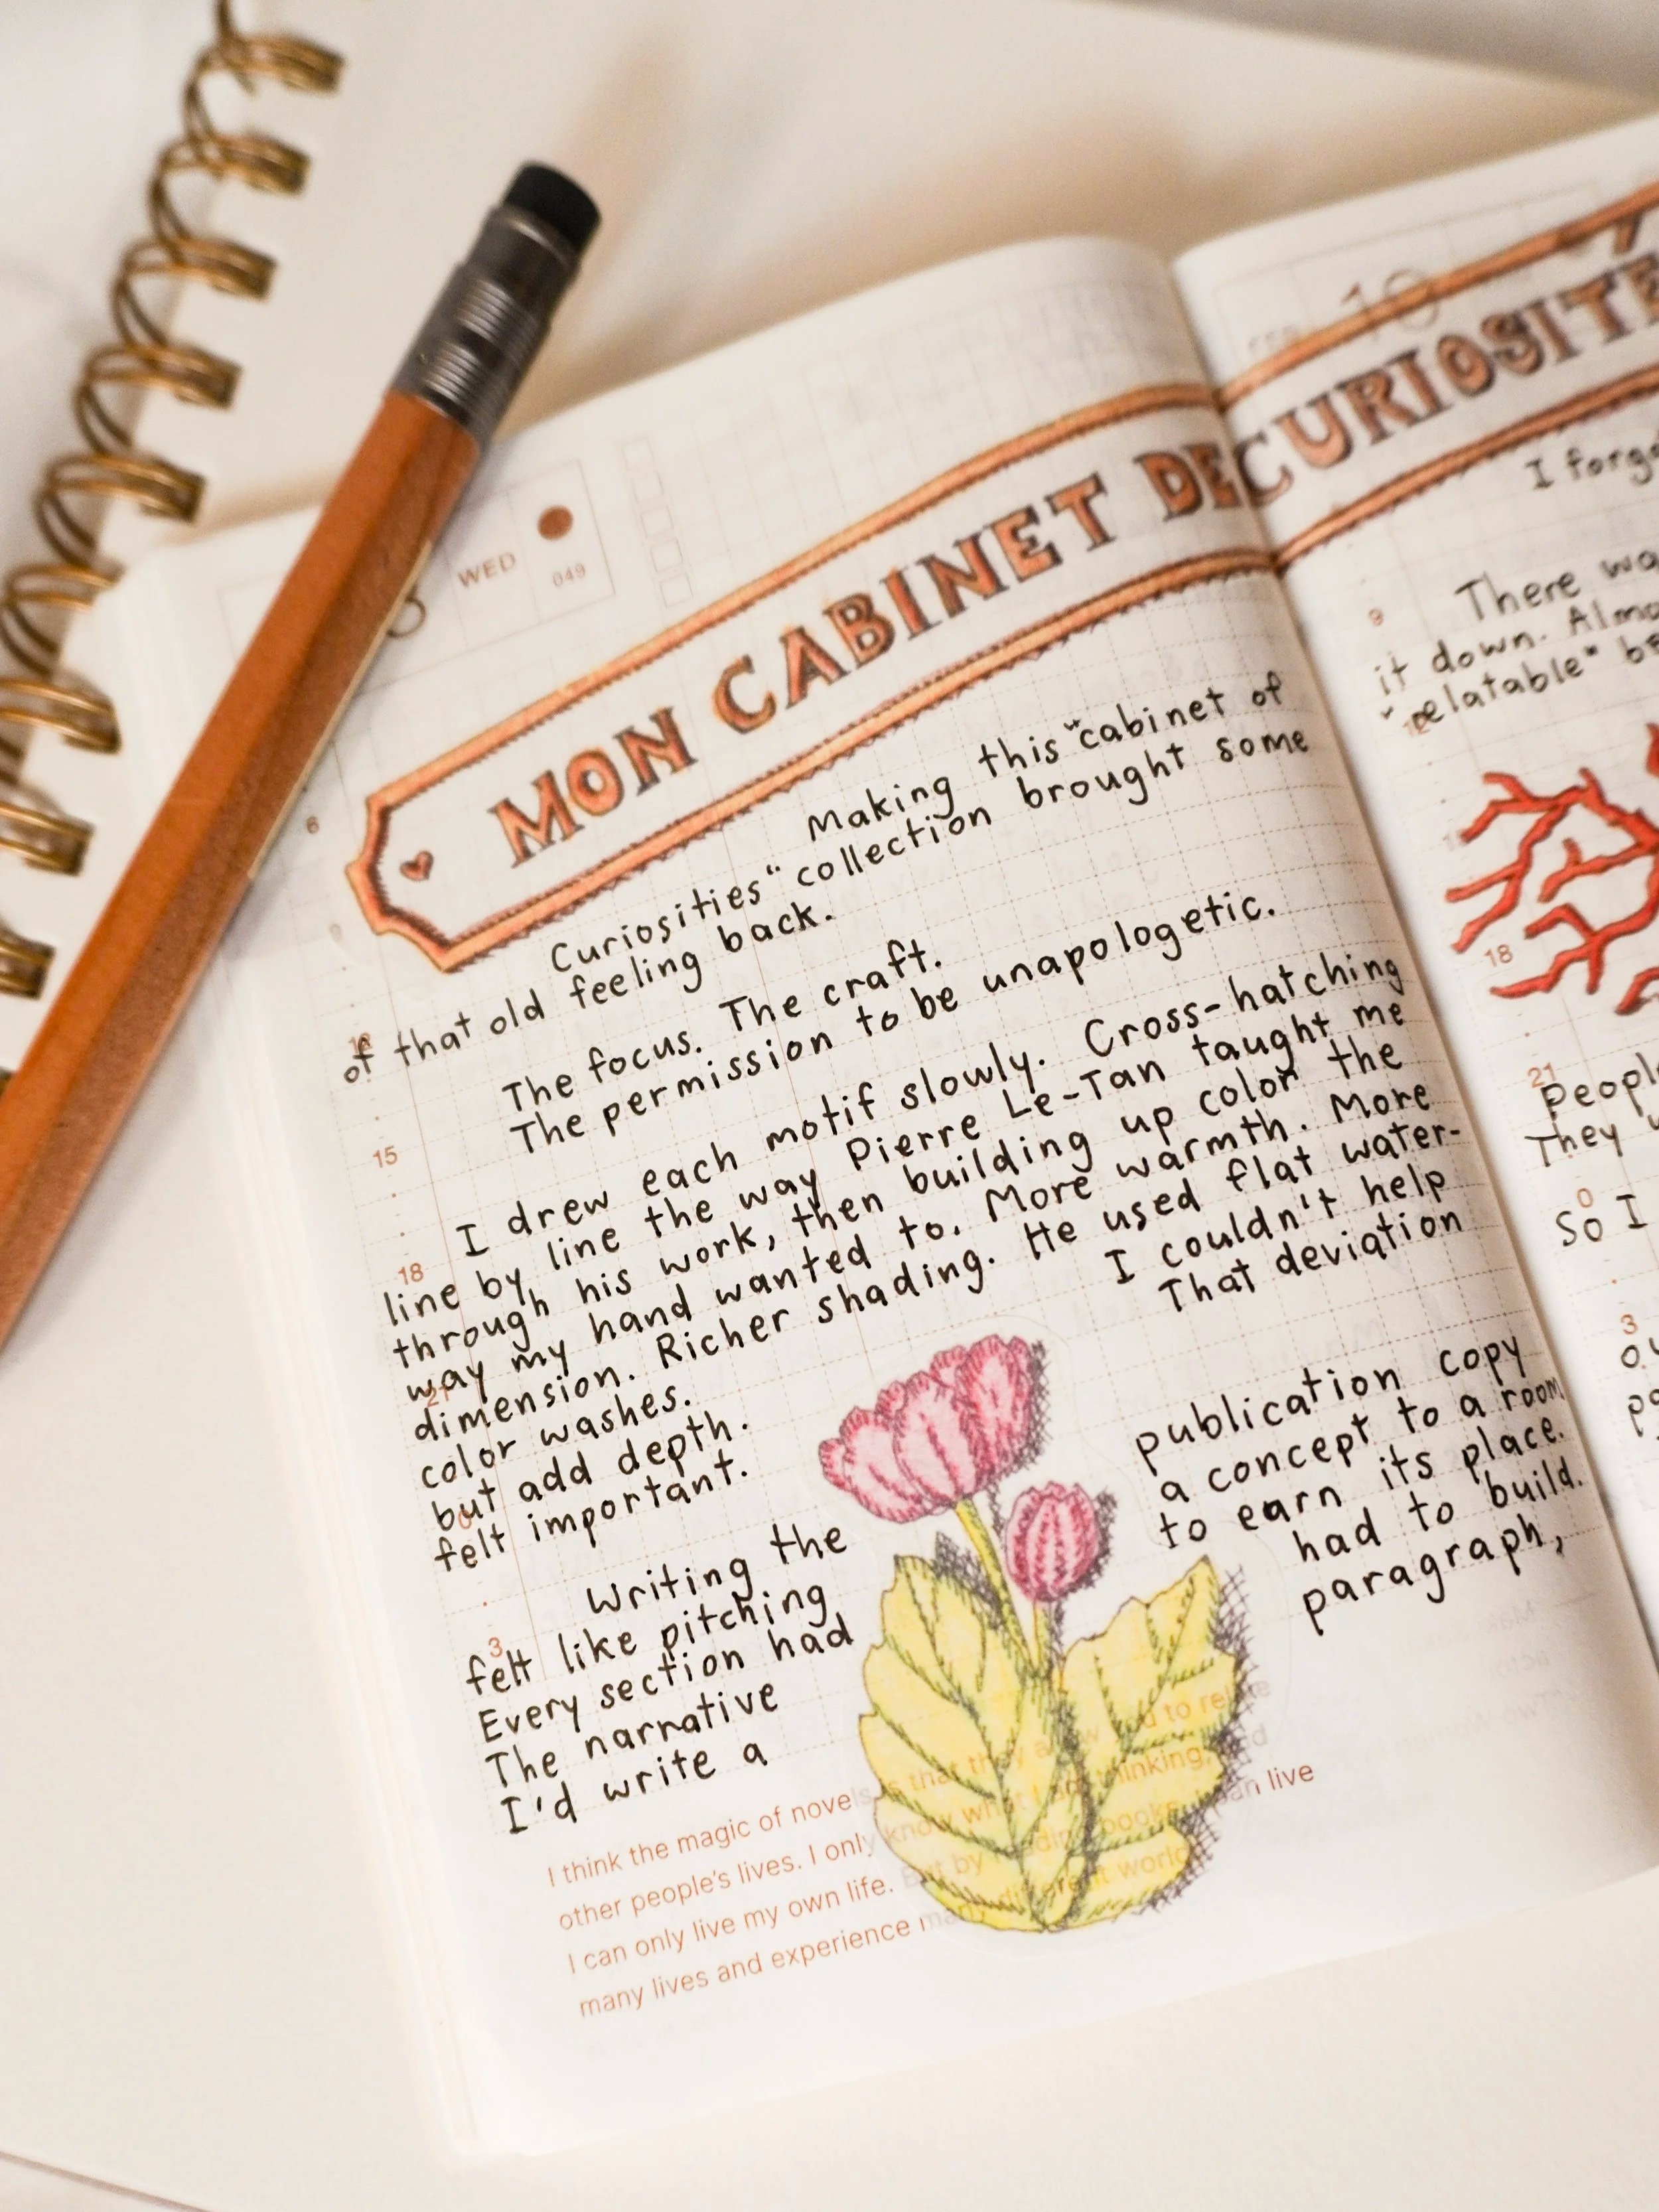 WED
049
MON CABINET DE CURIOSITE
Making this "cabinet of
Curiosities" collection brought some
of that old feeling back.
The focus. The craft.
The permission to be unapologetic.
I drew each motif slowly. Cross-hatching
line by line the way Pierre Le-Tan taught me
through his work, then building up color the
way my hand wanted to. More warmth. More
dimension. Richer shading. He used flat water-
color washes. I couldn't help
but add depth. That deviation
felt important.
Writing the publication copy
felt like pitching a concept to a room
Every section had to earn its place.
The narrative had to build.
I'd write a paragraph,
I think the magic of novels is that they allow you to relive
other people's lives. I only know what I am thinking, and
I can only live my own life. But by reading books, I can live
many lives and experience many different worlds
6
9
15
18
21
3
10
I forgo
There wa
it down. Almo
"relatable" be
9
12
18
21
People
They w
0
So I
3
ou
pa